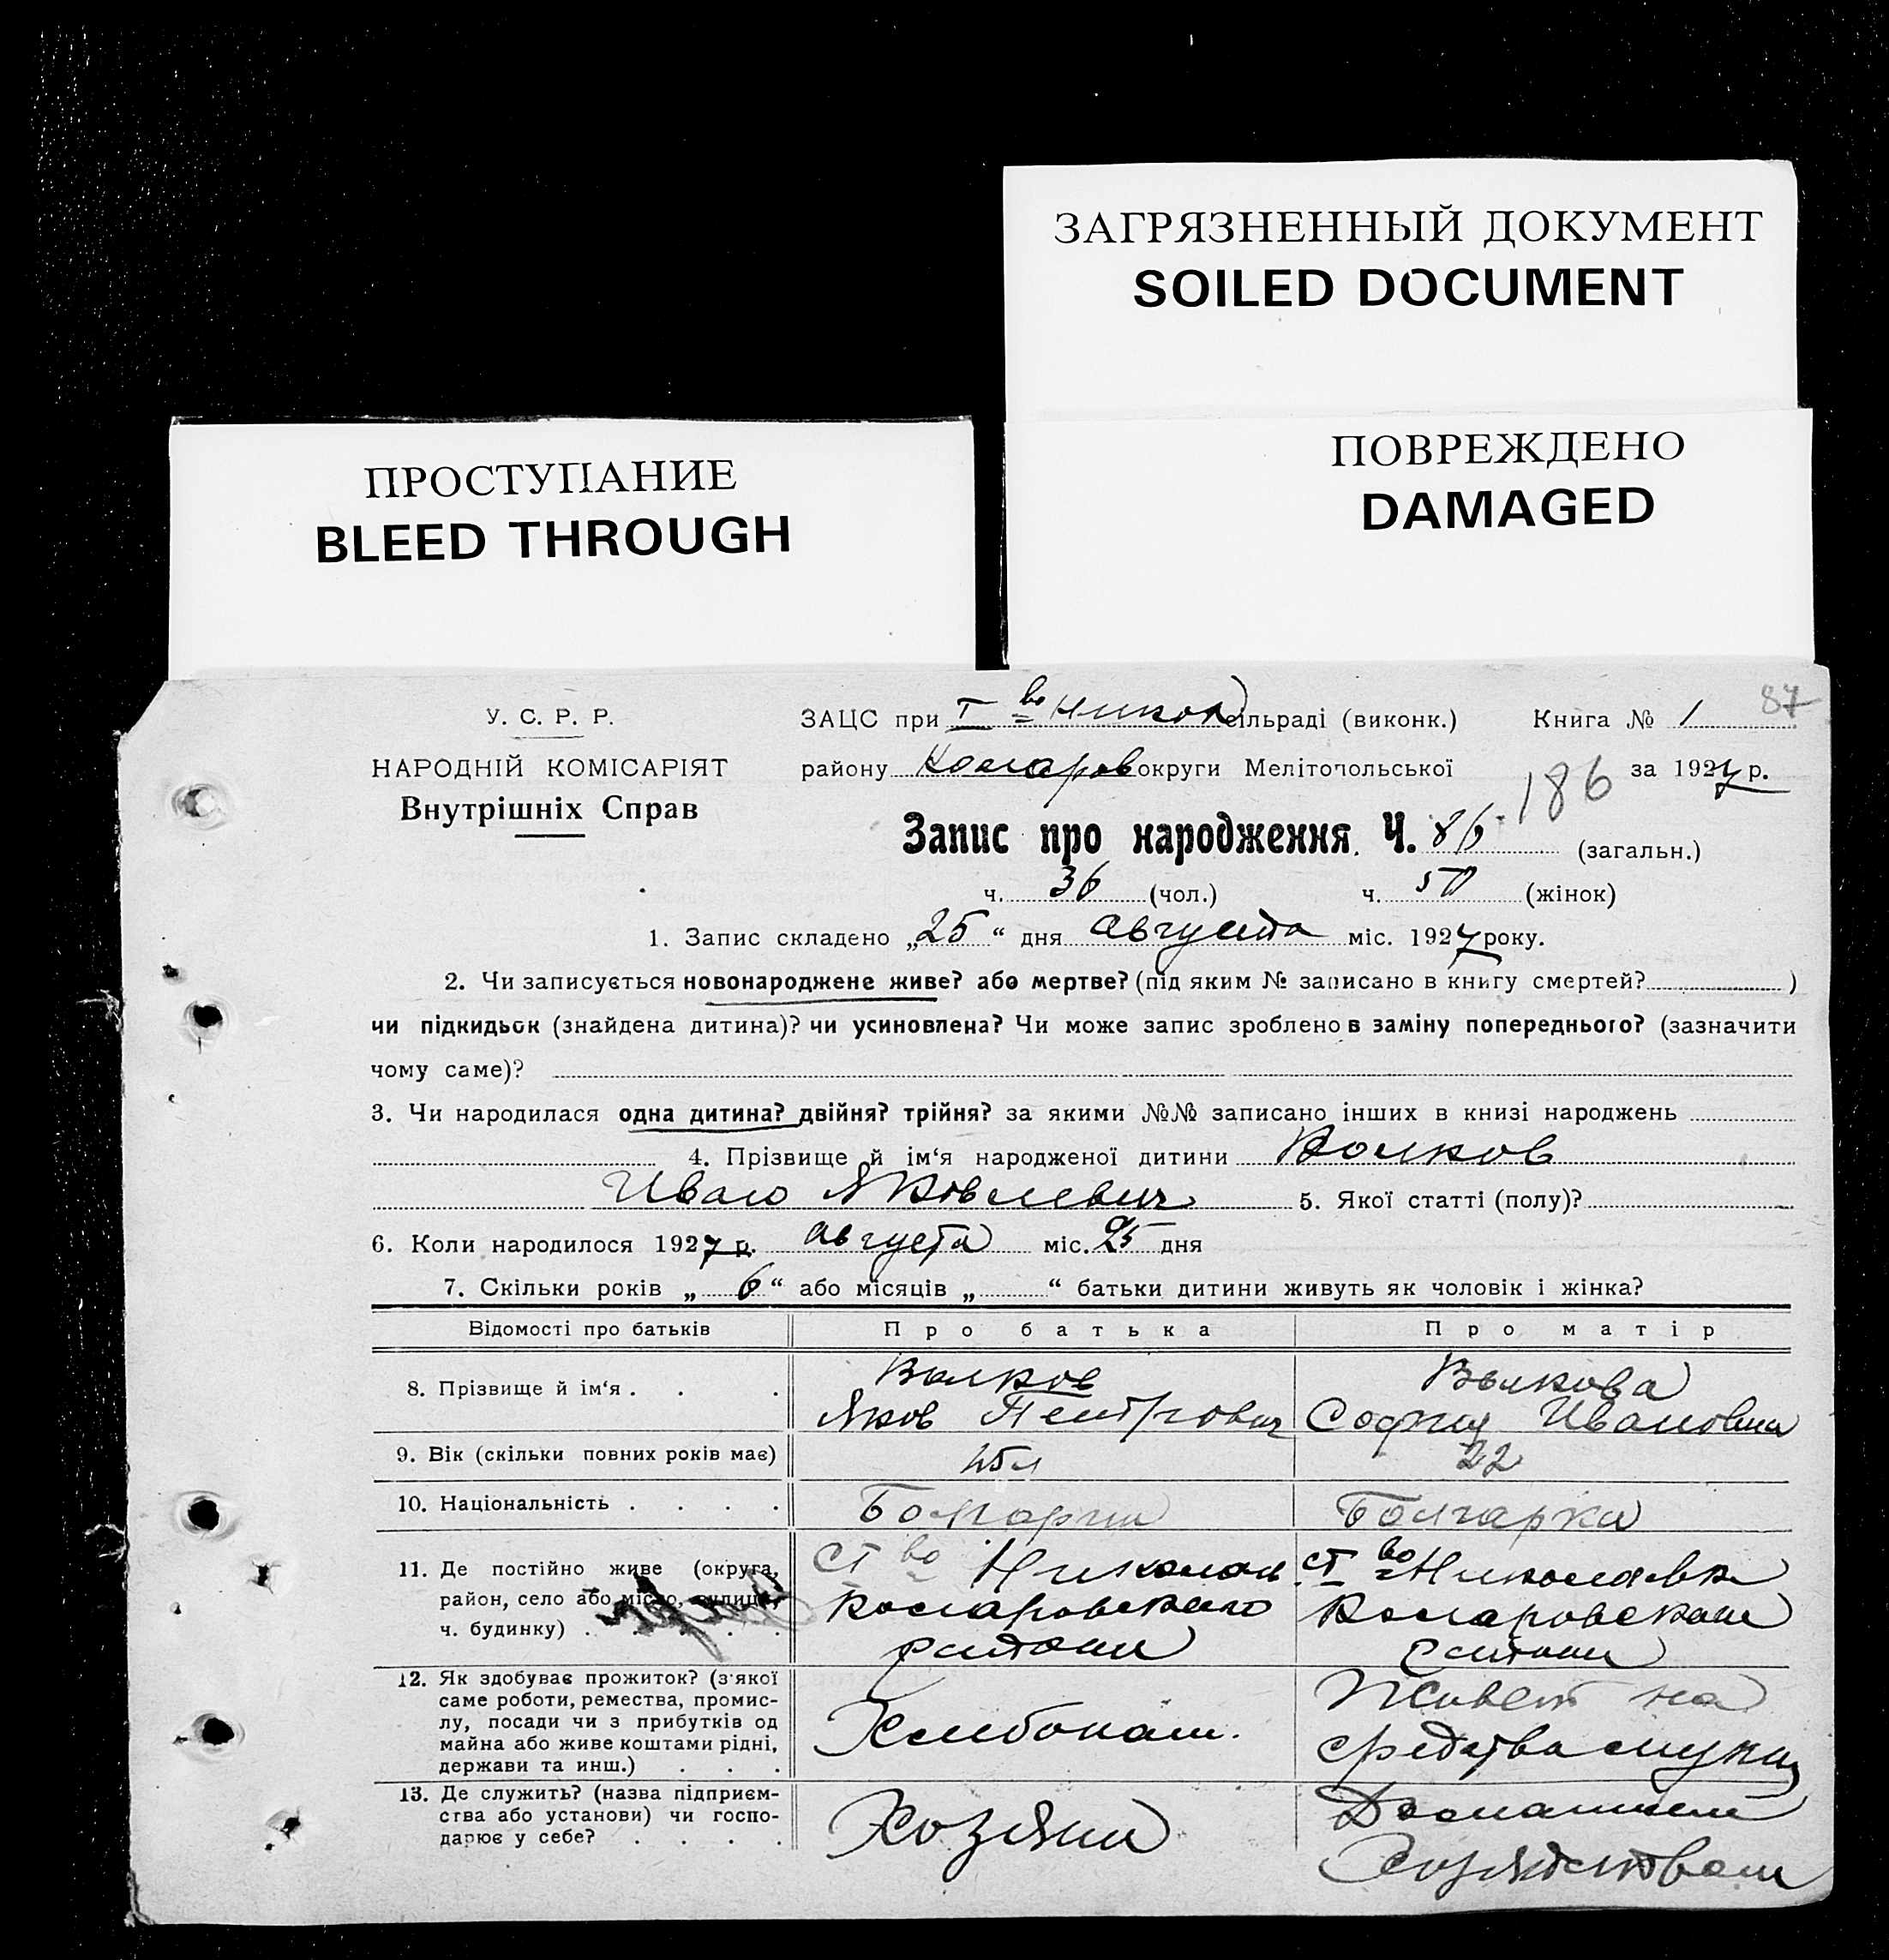 ЗАГРЯЗНЕННЫЙ ДОКУМЕНТ
SOILED DOCUMENT
ПОВРЕЖДЕНО
DAMAGED
ПРОСТУПАНИЕ
BLEED THROUGH
87
У. С. Р. Р.
НАРОДНІЙ КОМІСАРІЯТ
Внутрішніх Справ
ЗАЦС при I во Никол сільраді (виконк.) Книга № 1
району Комаров округи Мелітопольської за 1927 р.
186
Запис про народження. Ч. 86 (загальн.)
ч. 36 (чол.) ч. 50 (жінок)
1. Запис складено „25“ дня Августа міс. 1927 року.
2. Чи записується новонароджене живе? або мертве? (під яким № записано в книгу смертей? )
чи підкидьок (знайдена дитина)? чи усиновлена? Чи може запис зроблено в заміну попереднього? (зазначити
чому саме)?
3. Чи народилася одна дитина? двійня? трійня? за якими №№ записано інших в книзі народжень
4. Прізвище й ім‘я народженої дитини Волков
Иван Яковлевич 5. Якої статті (полу)?
6. Коли народилося 1927 р. августа міс. 25 дня
7. Скільки років „ 6 “ або місяців „ “ батьки дитини живуть як чоловік і жінка?
Відомості про батьків Про батька Про матір
8. Прізвище й ім‘я . . . Волков Яков Петрович Волкова София Ивановна
9. Вік (скільки повних років має) 25 л 22
10. Національність . . . . Болгарин Болгарка
11. Де постійно живе (округа,
район, село або місто, вулиця,
ч. будинку) . . . . .
Ст во Николаев
Комаровского
района
ст во Николаевка
Комаровского
района
12. Як здобуває прожиток? (з'якої
саме роботи, ремества, промис-
лу, посади чи з прибутків од
майна або живе коштами рідні,
держави та инш.) . . .
Хлебопаш.
Живет на
средства мужа
13. Де служить? (назва підприєм-
ства або установи) чи госпо-
дарює у себе? . . . .
Хозяин
Домашнем
Хозяйством